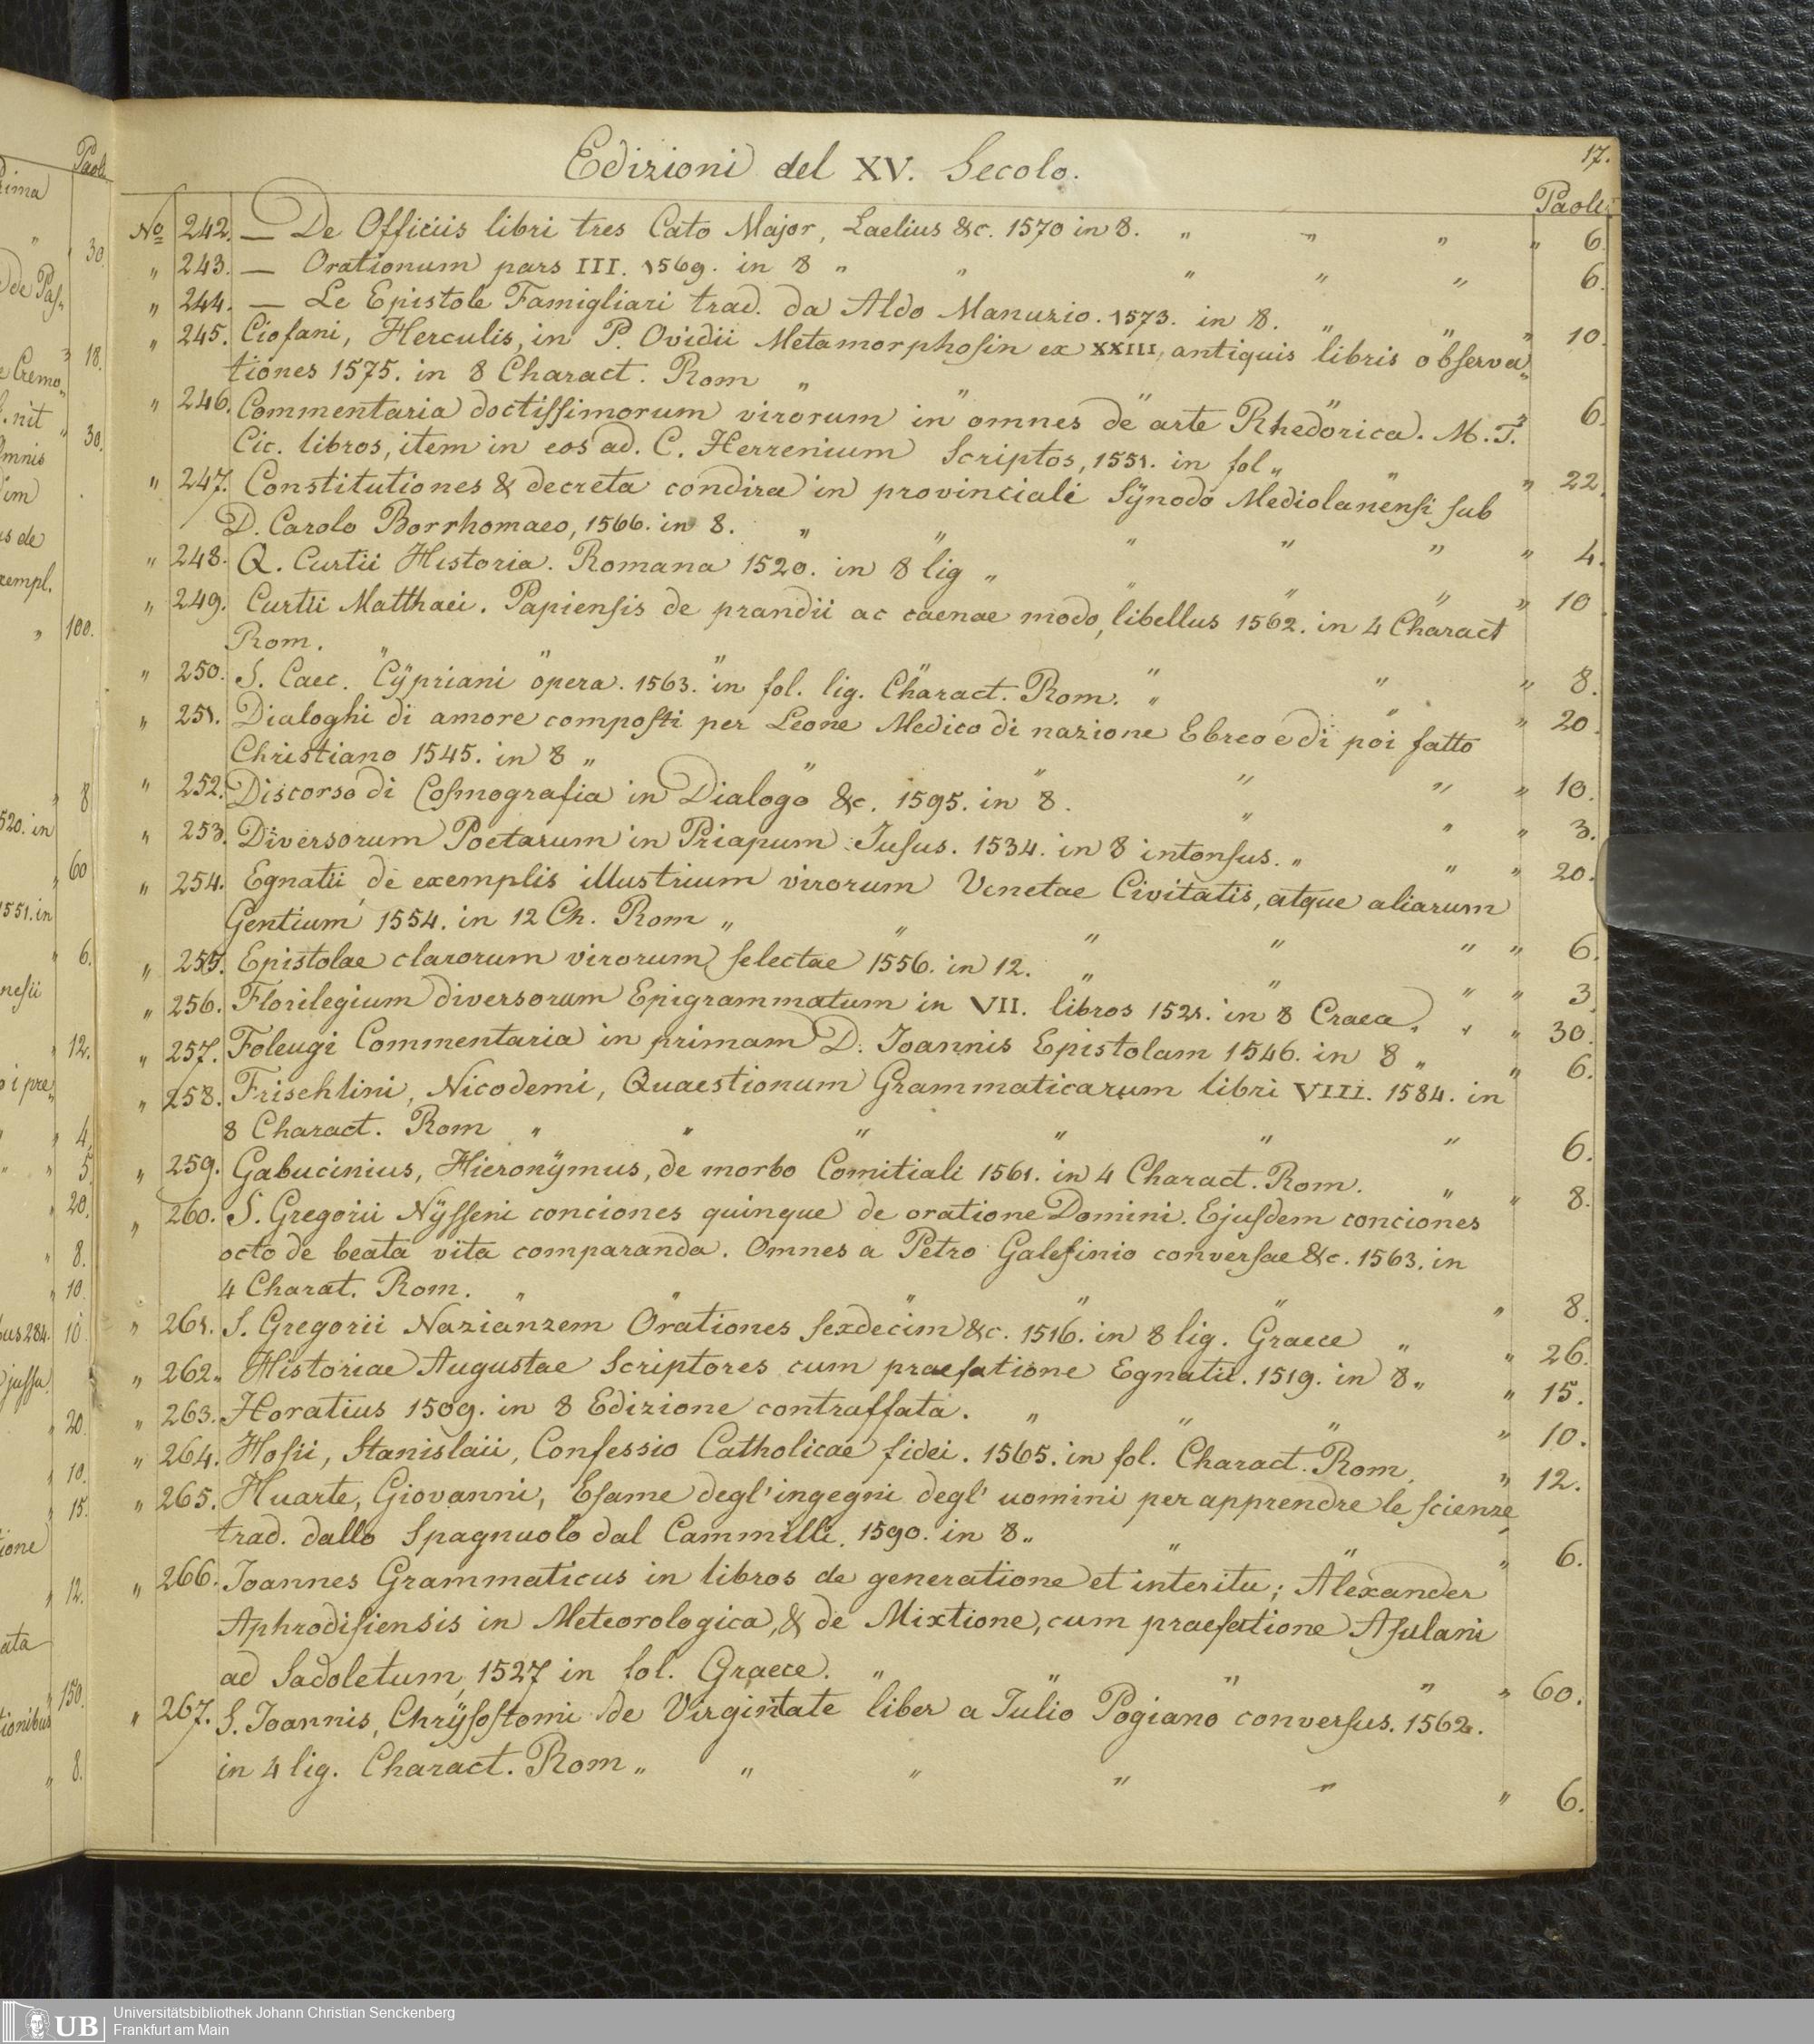 17.
Edizioni del XV. Secolo.
Paoli
No 242. — De Officiis libri tres Cato Major, Laelius &c. 1570 in 8. " " " " 6.
" 243. — Orationum pars III. 1569. in 8 " " " " " 6.
" 244. — Le Epistole Famigliari trad. da Aldo Manuzio. 1573. in 8. " " " 10.
" 245. Ciofani, Herculis, in P. Ovidii Metamorphosin ex XXIII, antiquis libris observa„
tiones 1575. in 8 Charact. Rom " " " " " 6.
" 246. Commentaria doctissimorum virorum in omnes de arte Rhedorica. M. T.
Cic. libros, item in eos ad. C. Herrenium Scriptos, 1551. in fol " " " 22.
" 247. Constitutiones & decreta condira in provinciali Synodo Mediolanensi sub
D. Carolo Borrhomaeo, 1566. in 8. " " " " " " 4.
" 248. Q. Curtii Historia. Romana 1520. in 8 lig " " " " " 10.
" 249. Curtii Matthaei. Papiensis de prandii ac caenae modo, libellus 1562. in 4 Charact
Rom. " " " " " " " 8.
" 250. S. Caec. Cÿpriani opera. 1563. in fol. lig. Charact. Rom. " " " 20.
" 251. Dialoghi di amore composti per Leone Medico di nazione Ebreo e di poi fatto
Christiano 1545. in 8 " " " " " " 10.
" 252. Discorso di Cosmografia in Dialogo &c. 1595. in 8. " " " 3.
" 253. Diversorum Poetarum in Priapum Iusus. 1534. in 8 intonsus. " " " 20.
" 254. Egnatii, de exemplis illustrium virorum Venetae Civitatis, atque aliarum
Gentium 1554. in 12 Ch. Rom " " " " " " 6.
" 255. Epistolae clarorum virorum selectae 1556. in 12. " " " " 3
" 256. Florilegium diversorum Epigrammatum in VII. libros 1521. in 8 Craea. " " 30.
" 257. Foleugi Commentaria in primam D. Ioannis Epistolam 1546. in 8 " " 6.
" 258. Frischlini, Nicodemi, Quaestionum Grammaticarum libri VIII. 1584. in
8 Charact. Rom " " " " " " 6.
" 259. Gabucinius, Hieronÿmus, de morbo Comitiali 1561. in 4 Charact. Rom. " " 8.
" 260. S. Gregorii Nÿsseni conciones quinque de oratione Domini. Ejusdem conciones
octo de beata vita comparanda. Omnes a Petro Galesinio conversae &c. 1563. in
4 Charat. Rom. " " " " " " 8.
" 261. S. Gregorii Nazianzem Orationes sexdecim &c. 1516. in 8 lig. Graece " " 26.
" 262. Historiae Augustae Scriptores cum praefatione Egnatii. 1519. in 8 " " 15.
" 263. Horatius 1509. in 8 Edizione contraffata. " " " " 10.
" 264. Hosii, Stanislaii, Confessio Catholicae fidei. 1565. in fol. Charact. Rom. " 12.
" 265. Huarte, Giovanni, Esame degl' ingegni degl' uomini per apprendre le scienze
trad. dallo Spagnuolo dal Cammilli. 1590. in 8 " " " " 6.
" 266. Ioannes Grammaticus in libros de generatione et interitu; Alexander
Aphrodisiensis in Meteorologica, & de Mixtione, cum praefatione Asulani
ad Sadoletum, 1527 in fol. Graece. " " " " " 60.
" 267. S. Ioannis, Chrÿsostomi de Virginitate liber a Iulio Pogiano conversus. 1562.
in 4 lig. Charact. Rom " " " " " " 6.
Paoli
rima
" 30.
de Pas„
" 18.
e Cremo„
. nit " 30.
mnis
im
us de
xempl.
" 100.
" 8
520. in
" 60
1551. in
" 6.
nesii
" 12.
o i pre„
" 4.
" 5.
" 20.
" 8.
" 10.
bus 284. 10.
jussu
" 20.
" 10.
" 15.
ione
" 12.
ata
" 150.
tionibus
" 8.
UB Universitätsbibliothek Johann Christian Senckenberg
Frankfurt am Main